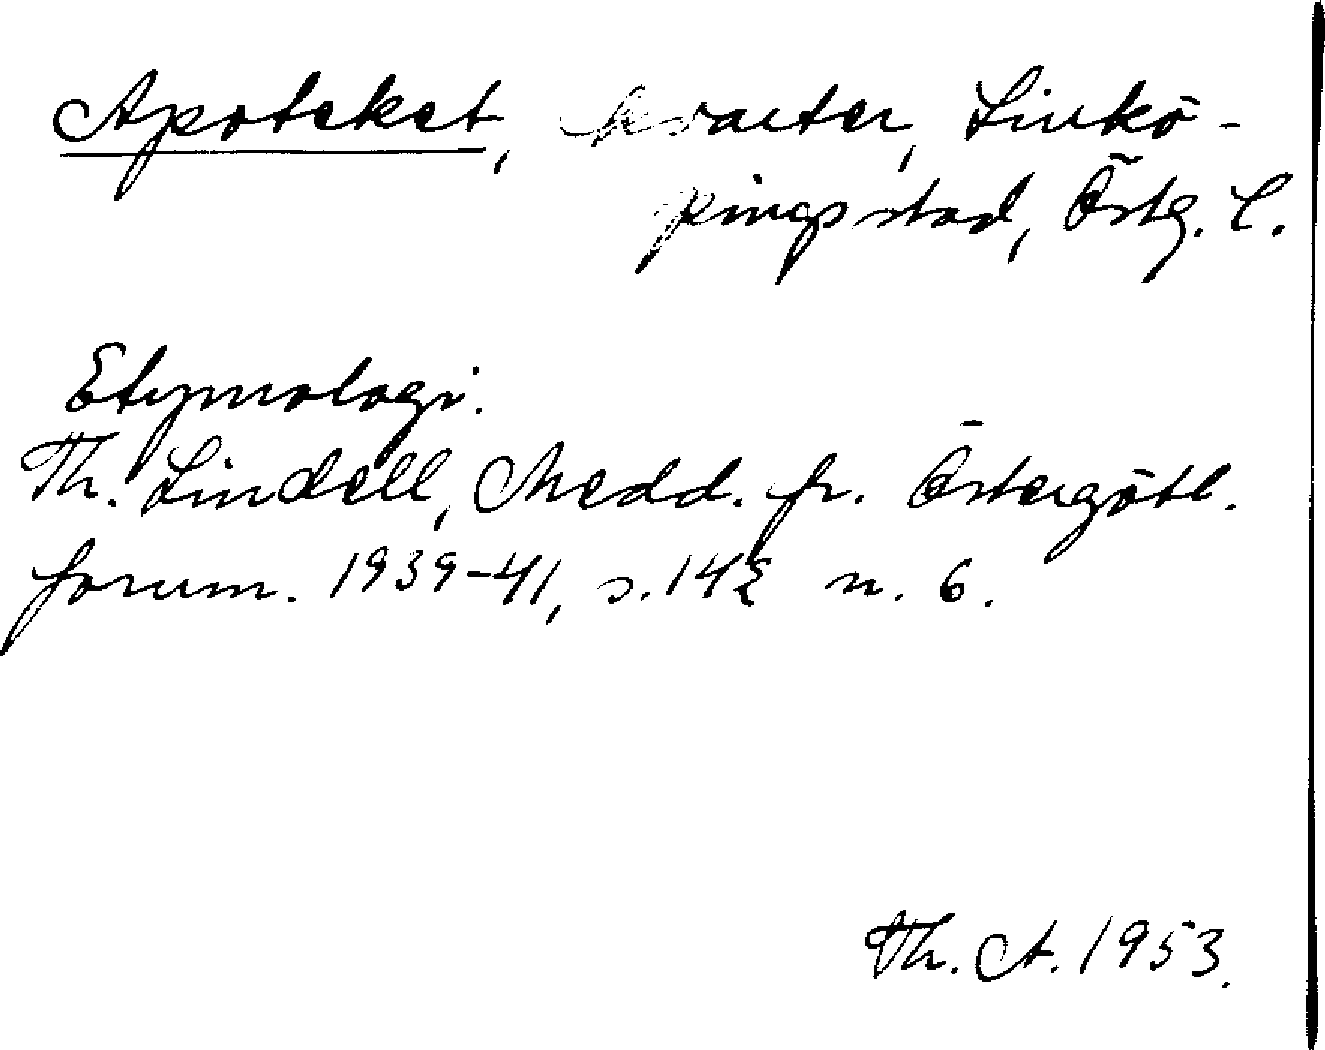 Apoteket, kvarter, Linkö-
pings stad, Östg. l.
Etymologi.
Th. Lindell, Medd. fr. Östergötl.
fornm. 1939-41, s. 142 n. 6.
Th. A. 1953.